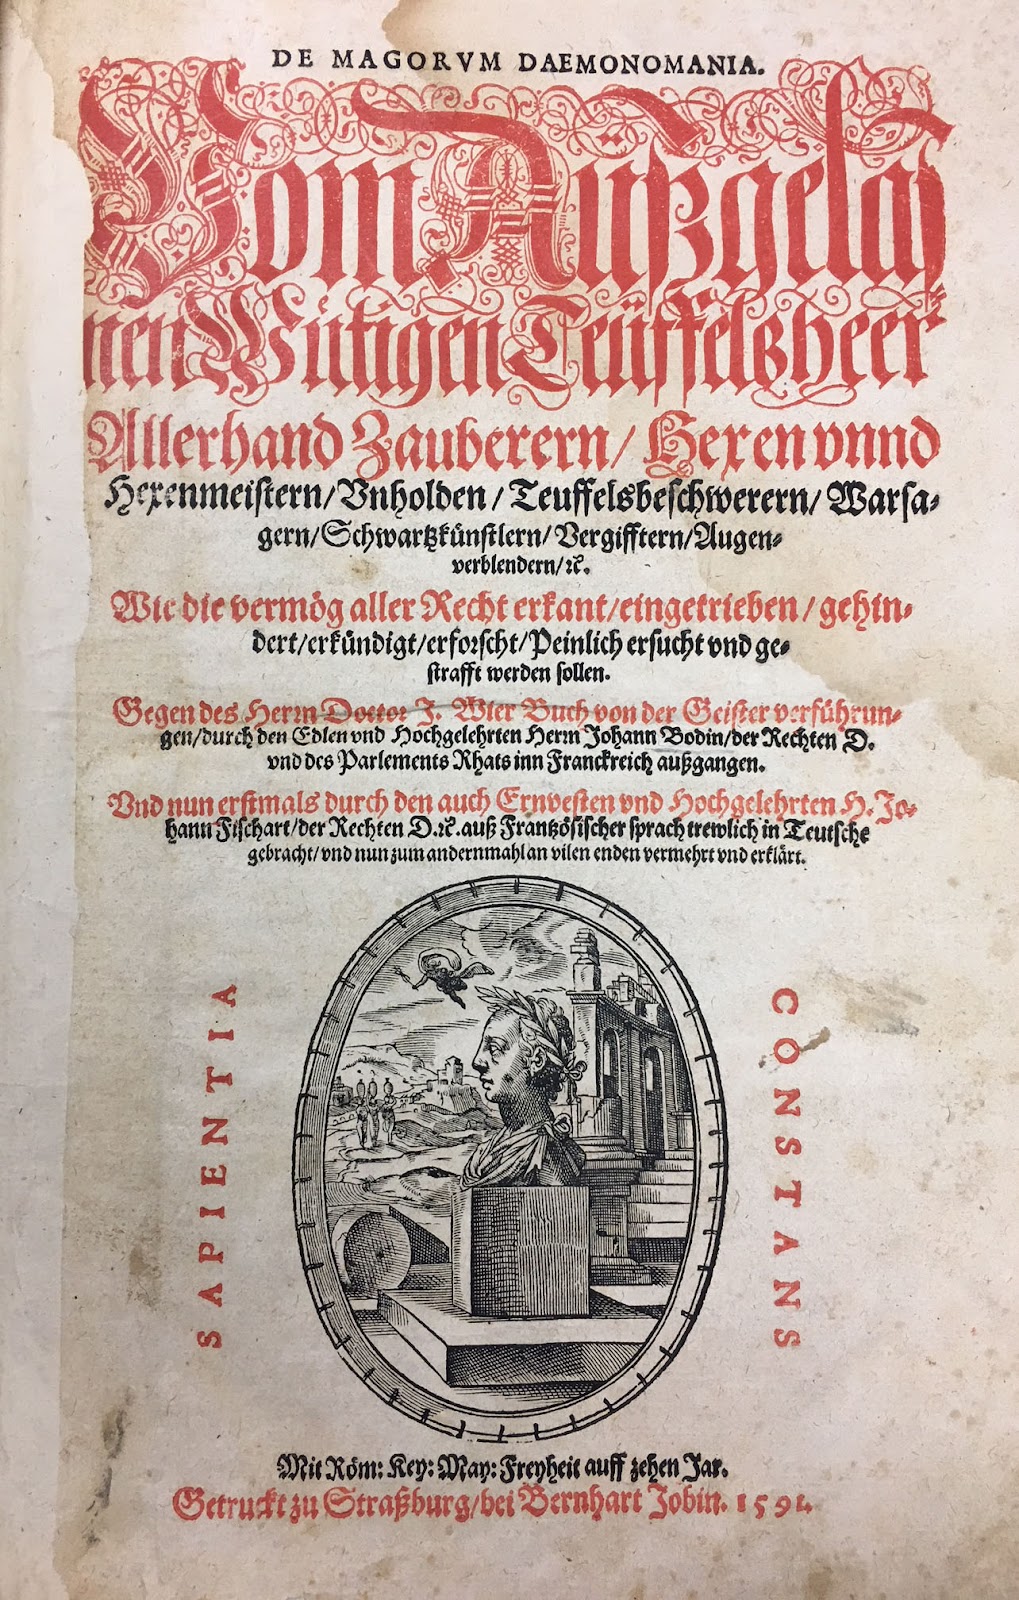 DE MAGORVM DAEMONOMANIA.
Vom Außgelaß
nen Wütigen Teüffelsheer
Allerhand Zauberern/ Hexen vnnd
Hexenmeistern/Vnholden/Teuffelsbeschwerern/Warsa-
gern/Schwartzkünstlern/Vergifftern/Augen-
verblendern/ꝛc.
Wie die vermög aller Recht erkant/eingetrieben/gehin-
dert/erkündigt/erforscht/Peinlich ersucht vnd ge-
strafft werden sollen.
Gegen des Herrn Doctor J. Wier Buch von der Geister verführun-
gen/durch den Edlen vnd Hochgelehrten Herrn Johann Bodin/der Rechten D.
vnd des Parlements Rhats inn Franckreich außgangen.
Vnd nun erstmals durch den auch Ernvesten vnd Hochgelehrten H. Jo-
hann Fischart/der Rechten D.ꝛc.auß Frantzösischer sprach trewlich in Teutsche
gebracht/vnd nun zum andernmahl an vilen enden vermehrt vnd erklärt.
SAPIENTIA
CONSTANS
Mit Röm: Key: May: Freyheit auff zehen Jar.
Getruckt zu Straßburg/bei Bernhart Jobin. 1591